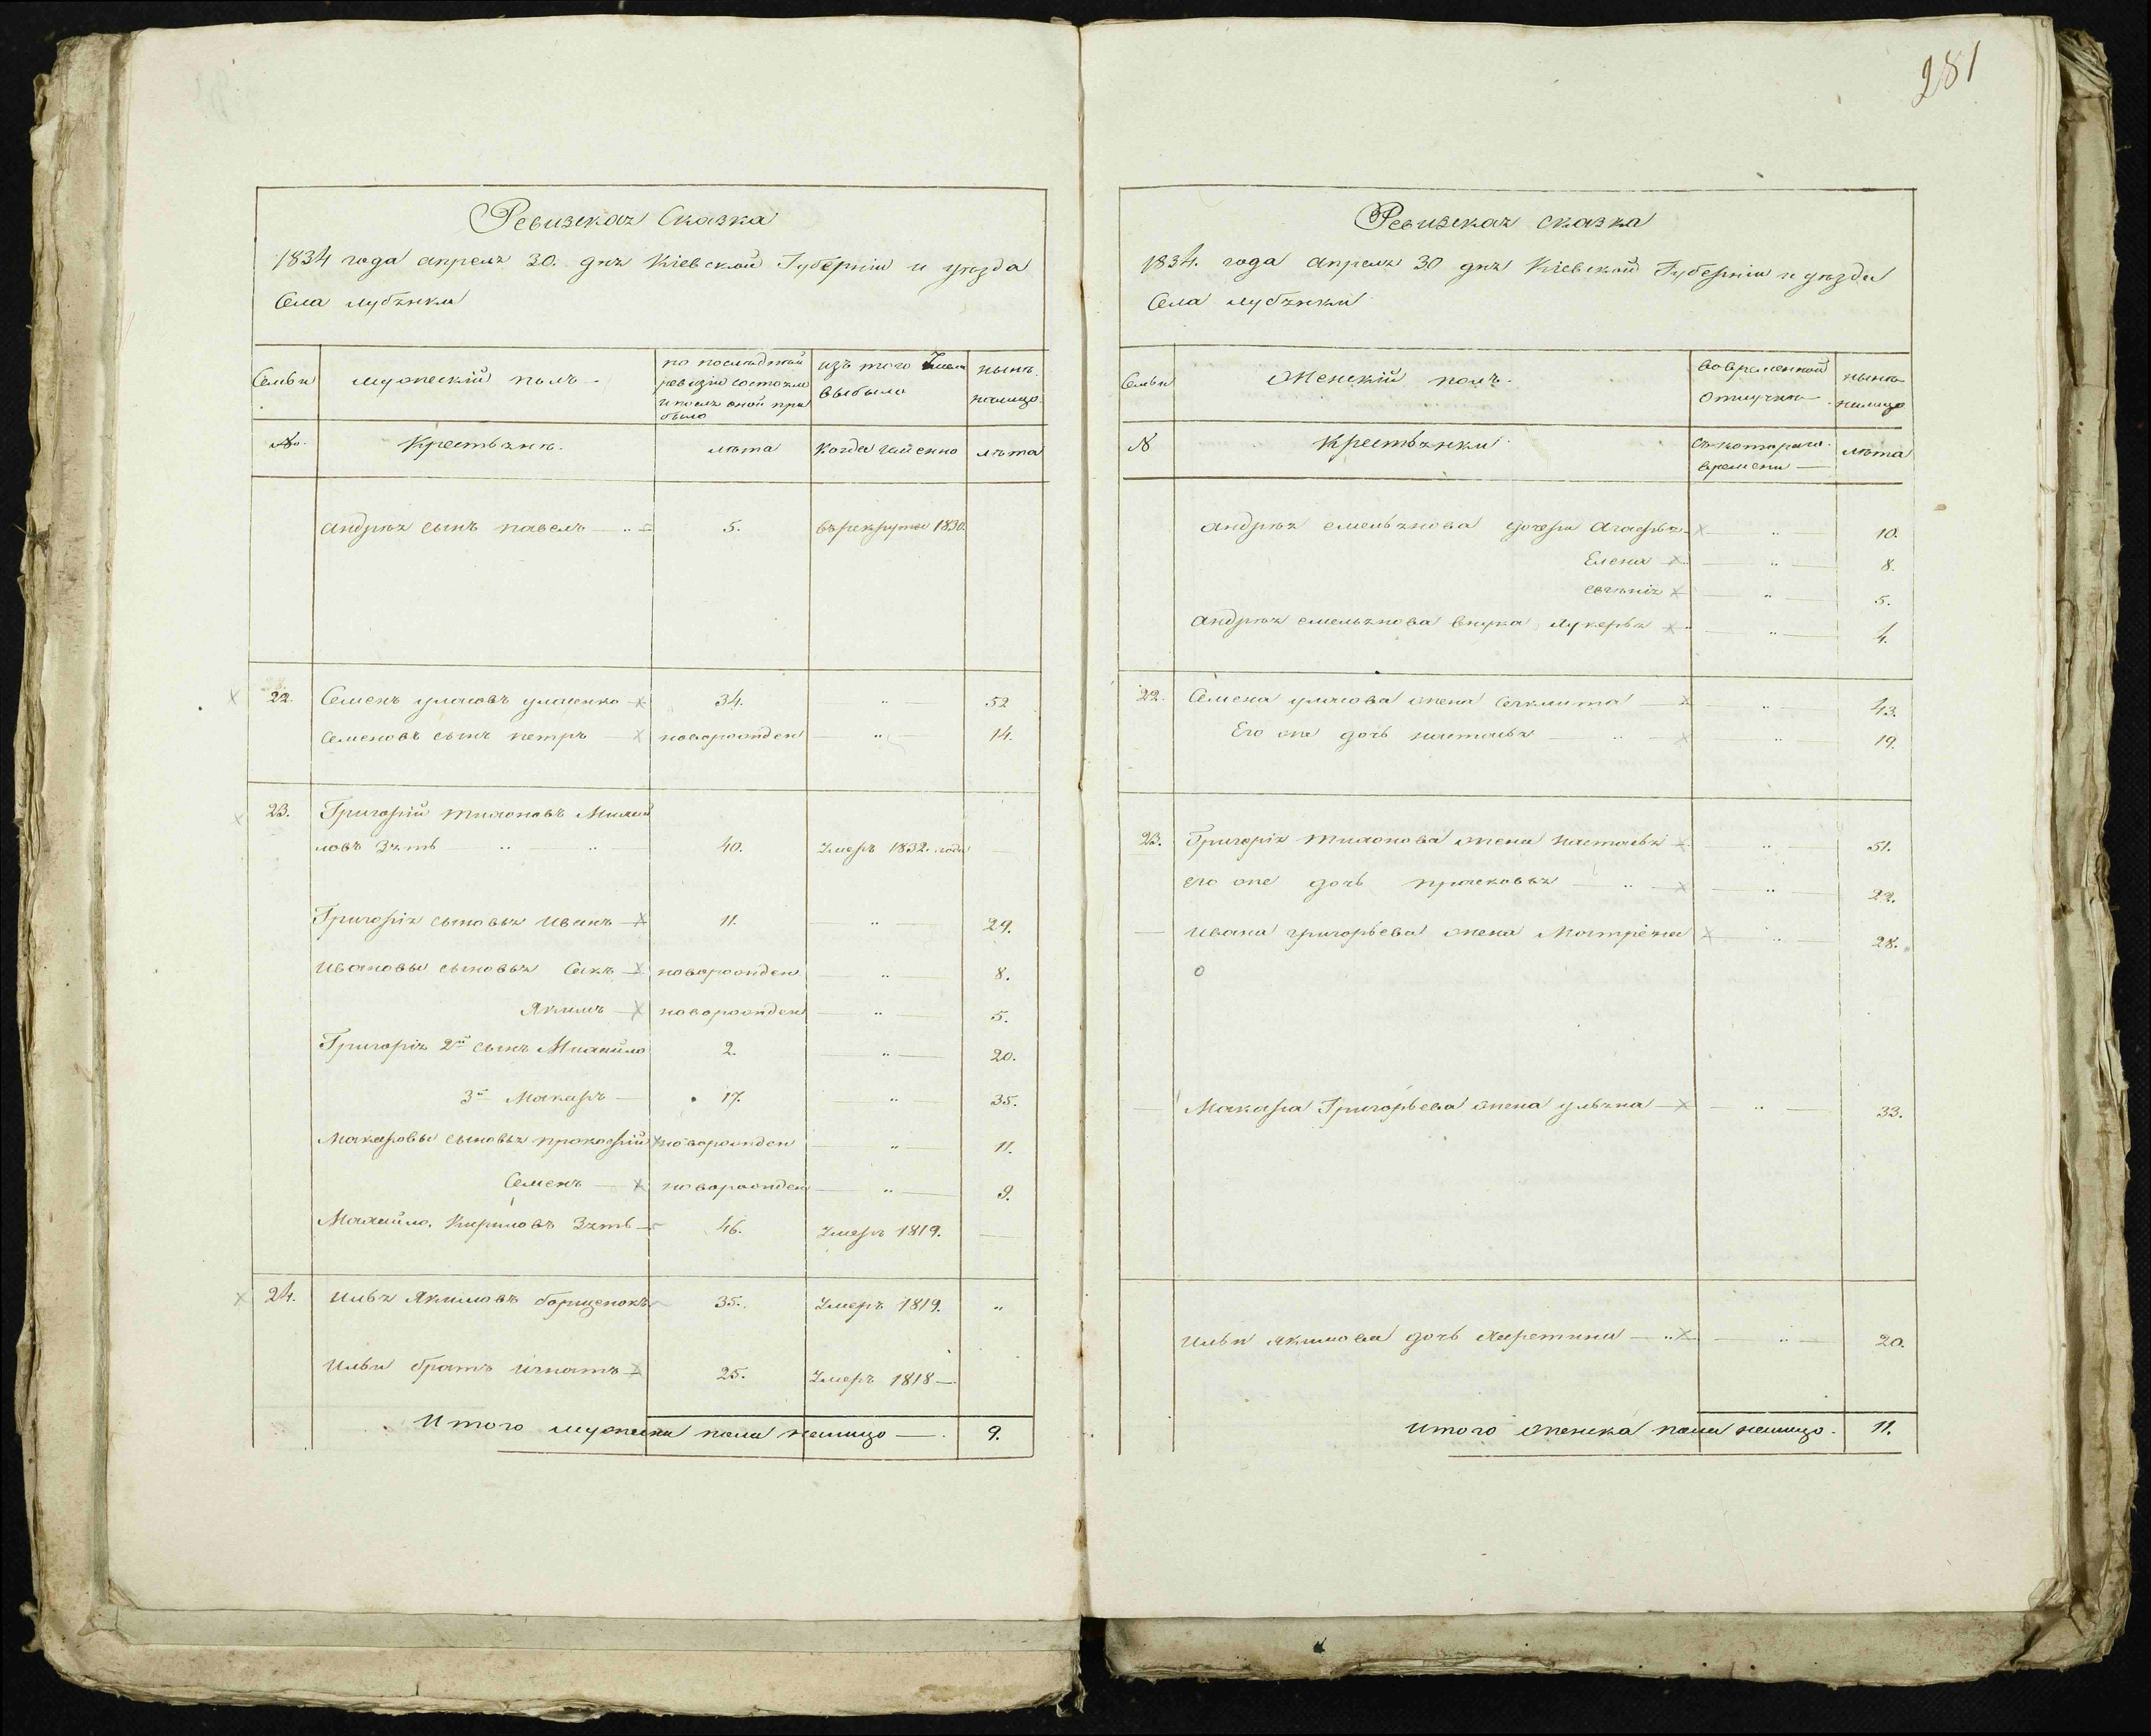 281
Ревизская Сказка
1834 года апреля 30. дня Кіевской Губерніи и уезда
Села лубянки
Семьи
мужескій полъ.
по последней ревизіи состояло и после оной прибыло
изъ того числа выбыло
ныне налицо.
№.
Крестьяне.
лѣта
когда именно
лѣта
андрея сынъ павелъ 5. въ рекруты 1830.
22. Семенъ уласовъ уласенко 34. 52
Семеновъ сынъ петръ новорожден 14.
23. Григорій тихоновъ Михай
ловъ Зять 40. Умеръ 1832. года
Григорія сыновья Иванъ 11. 29.
Ивановы сыновья Сакъ новорожден 8.
Якимъ новорожден 5.
Григорія 2й сынъ Михайло 2. 20.
3й Макаръ 17. 35.
Макаровы сыновья прокофій новорожден 11.
Семенъ новорожден 9.
Михайло Кириловъ Зять 46. Умеръ 1819.
24. Илья Якимовъ борщенокъ 35. Умеръ 1819.
Ильи братъ игнатъ 25. Умеръ 1818
Итого мужеска пола налицо 9.
Ревизская сказка
1834. года апреля 30 дня Кіевской Губерніи и уезда
Села лубянки
Семьи
Женскій полъ.
во временной отлучке
ныне налицо
№
Крестьянки
съ котораго времени
лѣта
андрея емельянова дочери Агафья 10.
Елена 8.
евгенія 5.
андрея емельянова внука лукерья 4.
22. Семена уласова жена 43.
Его же дочь наталья 19.
23. Григорія тихонова жена наталья 51.
его же дочь прасковья 22.
Ивана григорьева жена Матрена 28.
Макара Григорьева жена ульяна 33.
Ильи якимова дочь харетина 20.
Итого женска пола налицо. 11.